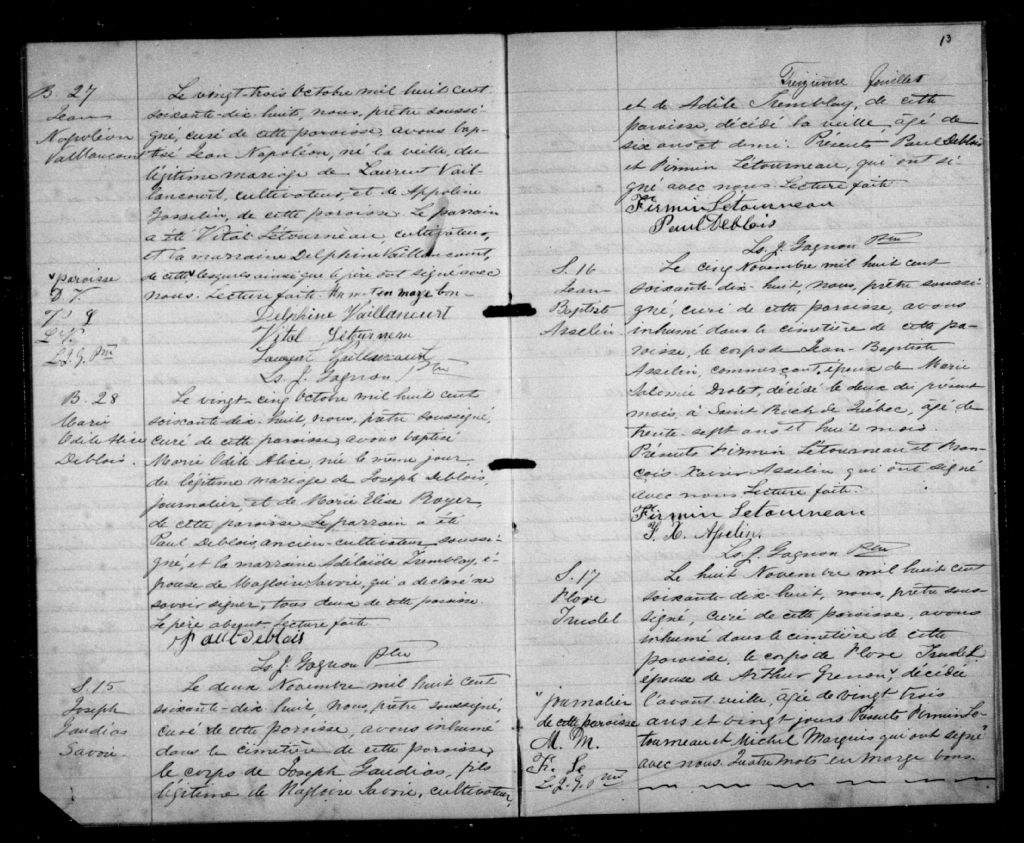 B. 27
Jean
Napoléon
Vaillancourt
Le vingt-trois Octobre mil huit cent
soixante-dix-huit, nous, prêtre soussi-
gné, curé de cette paroisse, avons bap-
tisé Jean Napoléon, né la veille, du
légitime mariage de Laurent Vail-
lancourt, cultivateur, et de Appoline
Gosselin, de cette paroisse. Le parrain
a été Vital Létourneau, cultivateur,
et la marraine Delphine Vaillancourt,
de cette, lesquels ainsi que le père ont signé avec
nous. Lecture faite. Un mot en marge bon-
paroisse
D. V.
V. L.
L. V.
L. J. G. Ptre
Delphine Vaillancourt
Vital Létourneau
Laurent Vaillancourt
Ls. J. Gagnon Ptre
B. 28
Marie
Odile Alice
Deblois.
Le vingt-cinq Octobre mil huit cent
soixante-dix-huit, nous, prêtre soussigné,
curé de cette paroisse, avons baptisé
Marie Odile Alice, née le même jour,
du légitime mariage de Joseph Deblois,
journalier, et de Marie Elise Royer,
de cette paroisse. Le parrain a été
Paul Deblois, ancien-cultivateur, soussi-
gné, et la marraine Adélaïde Tremblay, é-
pouse de Magloire Savoie, qui a déclaré ne
savoir signer, tous deux de cette paroisse.
Le père absent. Lecture faite.
Paul Deblois
Ls. J. Gagnon Ptre
S. 15
Joseph
Gaudias
Savoie.
Le deux Novembre mil huit cent
soixante-dix-huit, nous, prêtre soussigné,
curé de cette paroisse, avons inhumé
dans le cimetière de cette paroisse,
le corps de Joseph Gaudias, fils
légitime de Magloire Savoie, cultivateur,
13
Treizième feuillet
et de Adèle Tremblay, de cette
paroisse, décédé la veille, âgé de
six ans et demi. Présents Paul Deblois
et Firmin Létourneau, qui ont si-
gné avec nous. Lecture faite.
Firmin Letourneau
Paul Deblois
Ls. J. Gagnon Ptre
S. 16
Jean
Baptiste
Asselin
Le cinq Novembre mil huit cent
soixante-dix-huit, nous, prêtre soussi-
gné, curé de cette paroisse, avons
inhumé dans le cimetière de cette pa-
roisse, le corps de Jean-Baptiste
Asselin, commerçant, époux de Marie
Salomée Drolet, décédé le deux du présent
mois, à Saint Roch de Québec, âgé de
trente-sept ans et huit mois.
Présents Firmin Létourneau et Fran-
çois Xavier Asselin qui ont signé
avec nous. Lecture faite.
Firmin Letourneau
F. X. Asselin
Ls. J. Gagnon Ptre
S. 17
Flore
Trudel
Le huit Novembre mil huit cent
soixante-dix-huit, nous, prêtre sous-
signé, curé de cette paroisse, avons
inhumé dans le cimetière de cette
paroisse, le corps de Flore Trudel
épouse de Arthur Grenon, décédée
l'avant veille, âgée de vingt trois
ans et vingt jours. Présents Firmin Lé-
tourneau et Michel Marquis qui ont signé
avec nous. Quatre mots en marge bons.
journalier
de cette paroisse
M. M.
Fi. Le
L. J. G. Ptre